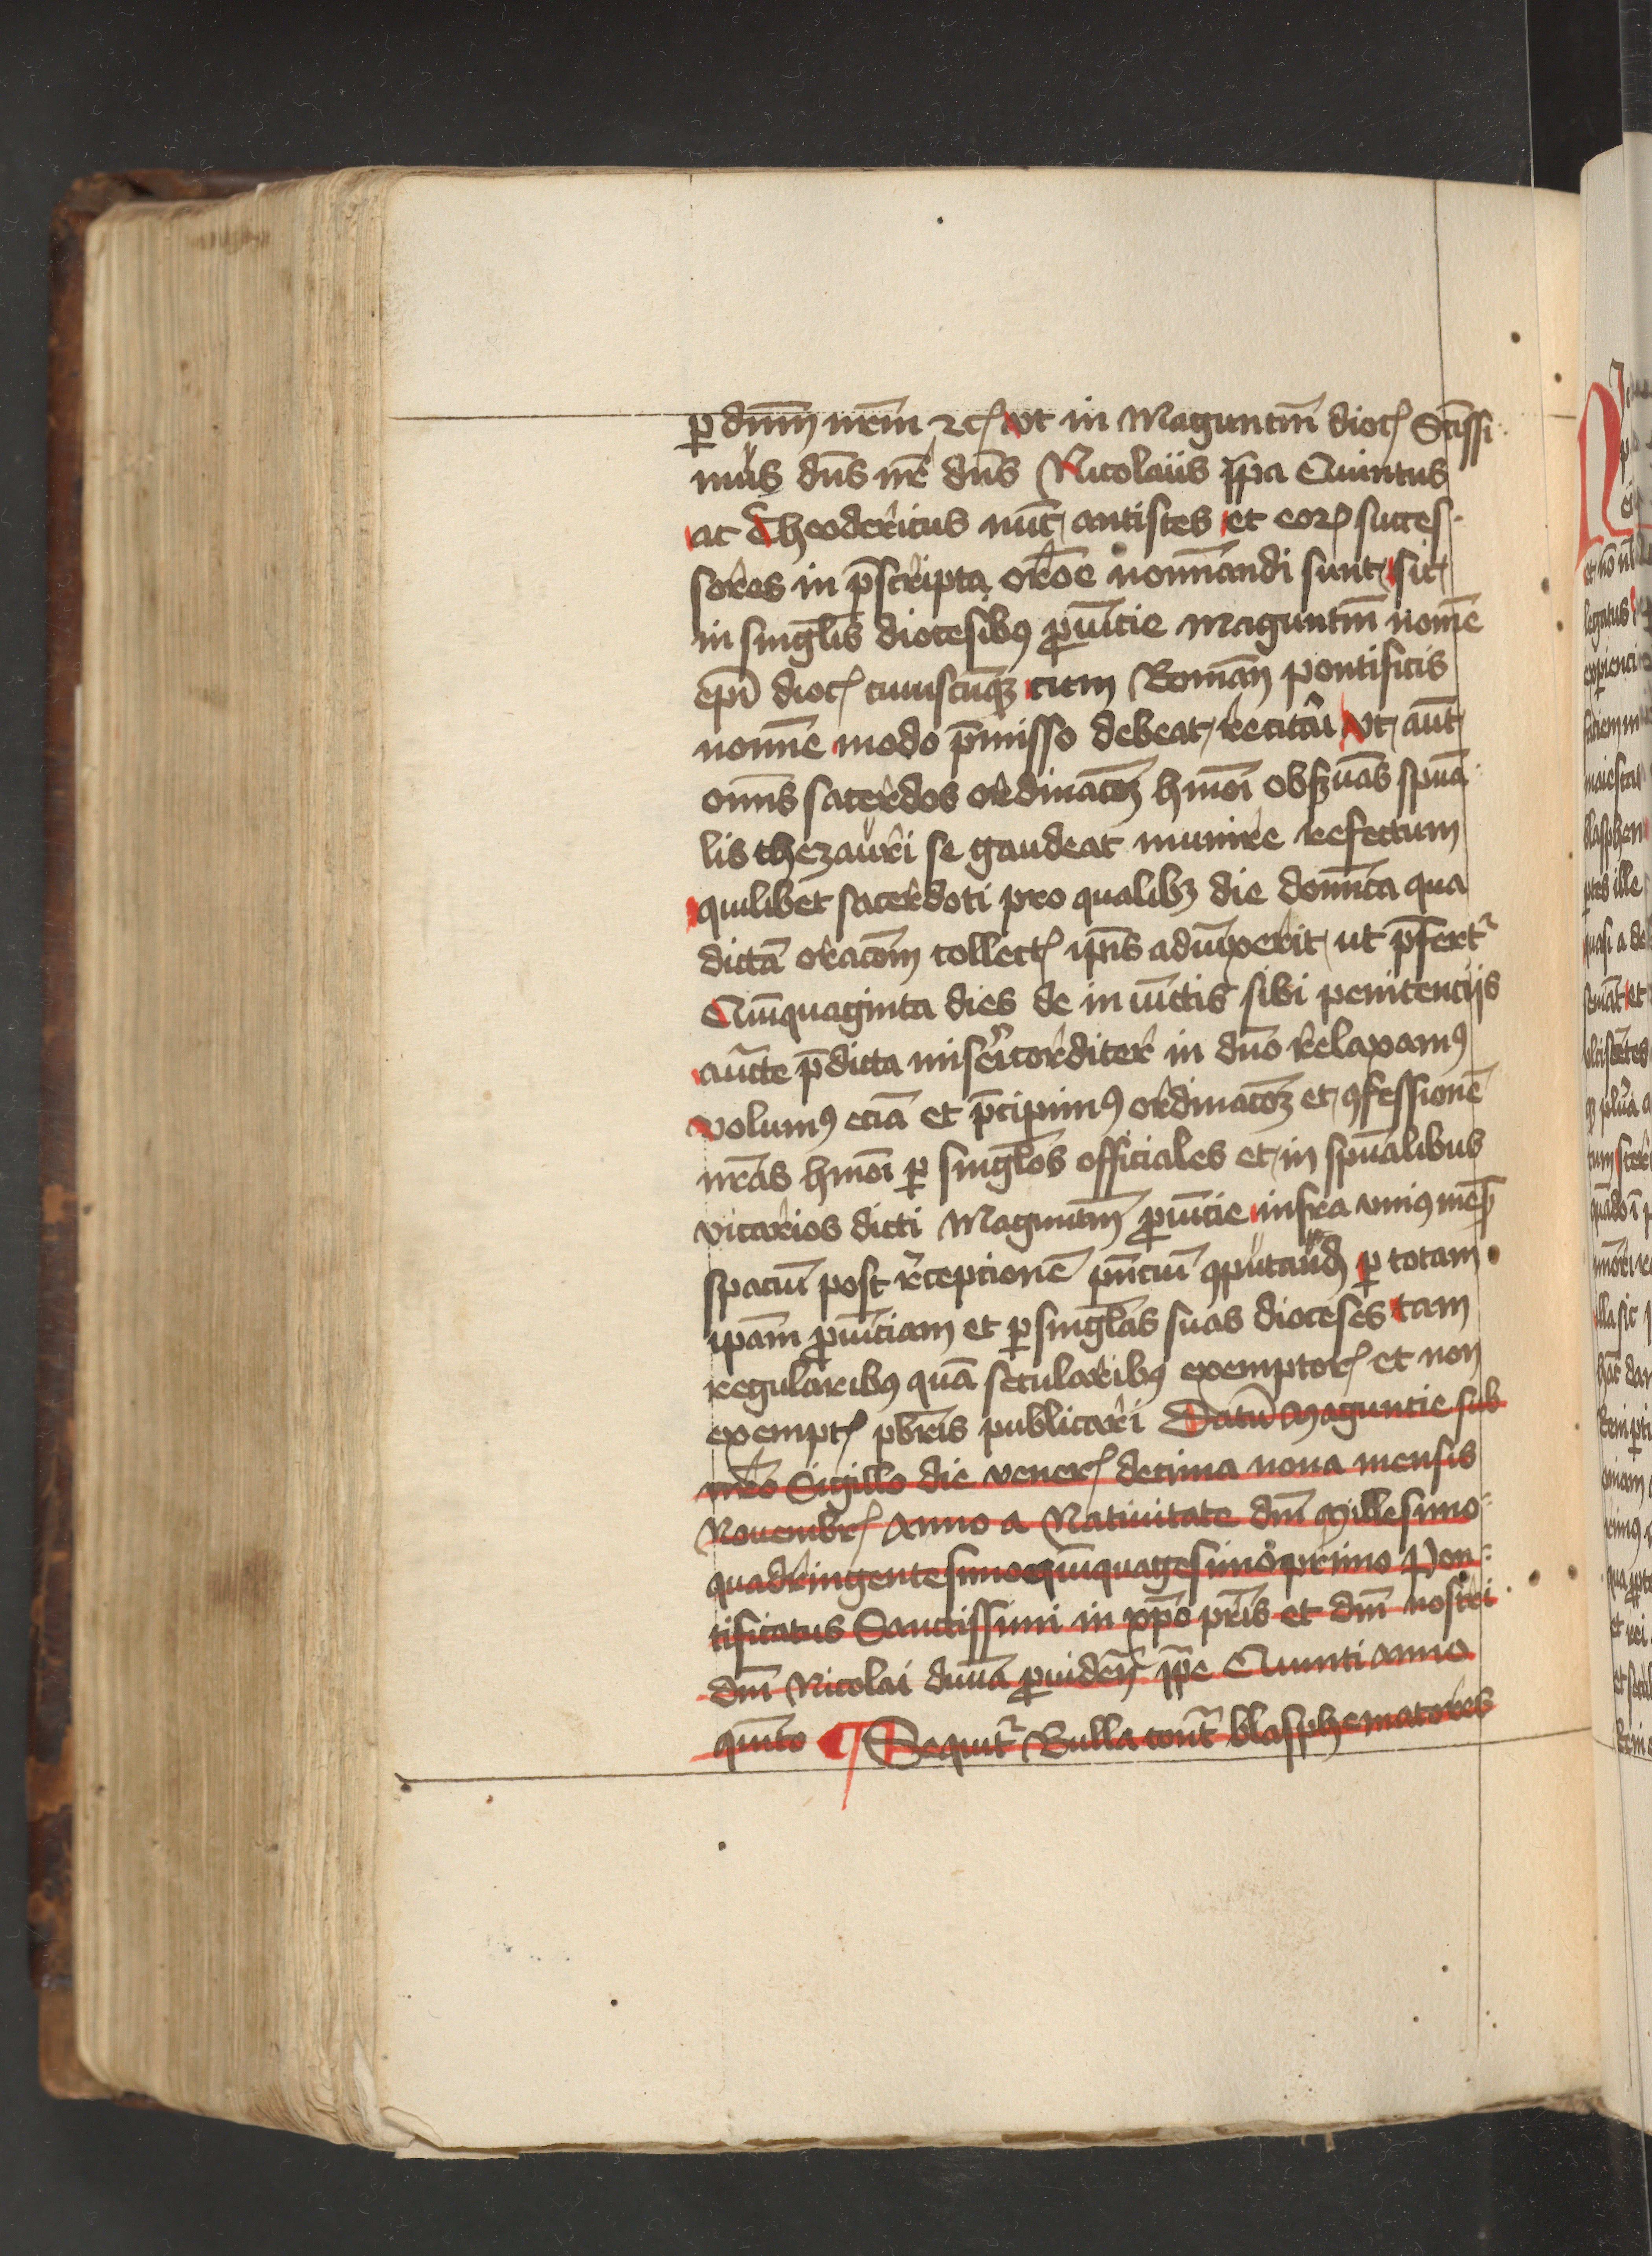 ꝑ dn̄m nr̄m ⁊cꝭ Vt in Maguntin̄ diocꝭ Sctīssi
mus dn̄s nr̄ dn̄s Nicolaus p̄pa Quintus
ac Theodericus nūc antistes et eoꝝ succes-
sores in p̄scripta orōe nominandi sunt sic
in singl̄is diocesibꝰ ꝓuīcie Maguntin̄ nomē
ep̄i diocꝭ cuiuscūqꝫ cum Roman̄ pontificis
nomīe modo p̄misso debeat recitari Vt aūt
omīs sacerdos ordinacōꝫ hmōi obẜuās spūa
lis thezauri se gaudeat munire refectum
quilibet sacerdoti pro qualibꝫ die domīca qua
dictā oracōm collectꝭ ip̄ius adiūxerit ut p̄fertᷣ
Quīquaginta dies de iniūctis sibi penitencijs
auc̄te p̄dicta misericorditer in dn̄o relaxamꝰ
Volumꝰ eciā et p̄cipimꝰ ordinacōꝫ et ꝯfessionē
nr̄as hmōi ꝑ singl̄os officiales et in spūalibus
vicarios dicti Maguntin̄ ꝓuīcie infra vniꝰ mēsꝭ
spaciū post recepcionē pn̄ciū ꝯputand̄ ꝑ totam
ipām ꝓuīciam et ꝑ singl̄as suas dioceses tam
regularibꝰ quā secularibꝰ exemptorꝭ et non
exemptꝭ pbr̄is publicari Datū Maguncie sub
nr̄o Sigillo die venerꝭ decima nona mensis
Nouembrꝭ Anno a Natiuitate dn̄i Millesimo
quadringentesimo quīquagesimo primo Pon-
tificatus Sanctissimi in xp̄o pr̄is et dn̄i nostri
dn̄i Nicolai diuīa ꝓuidenꝭ p̄pe Quinti anno
quīto ¶ Sequitᷣ Bulla cont̄ blasphematores